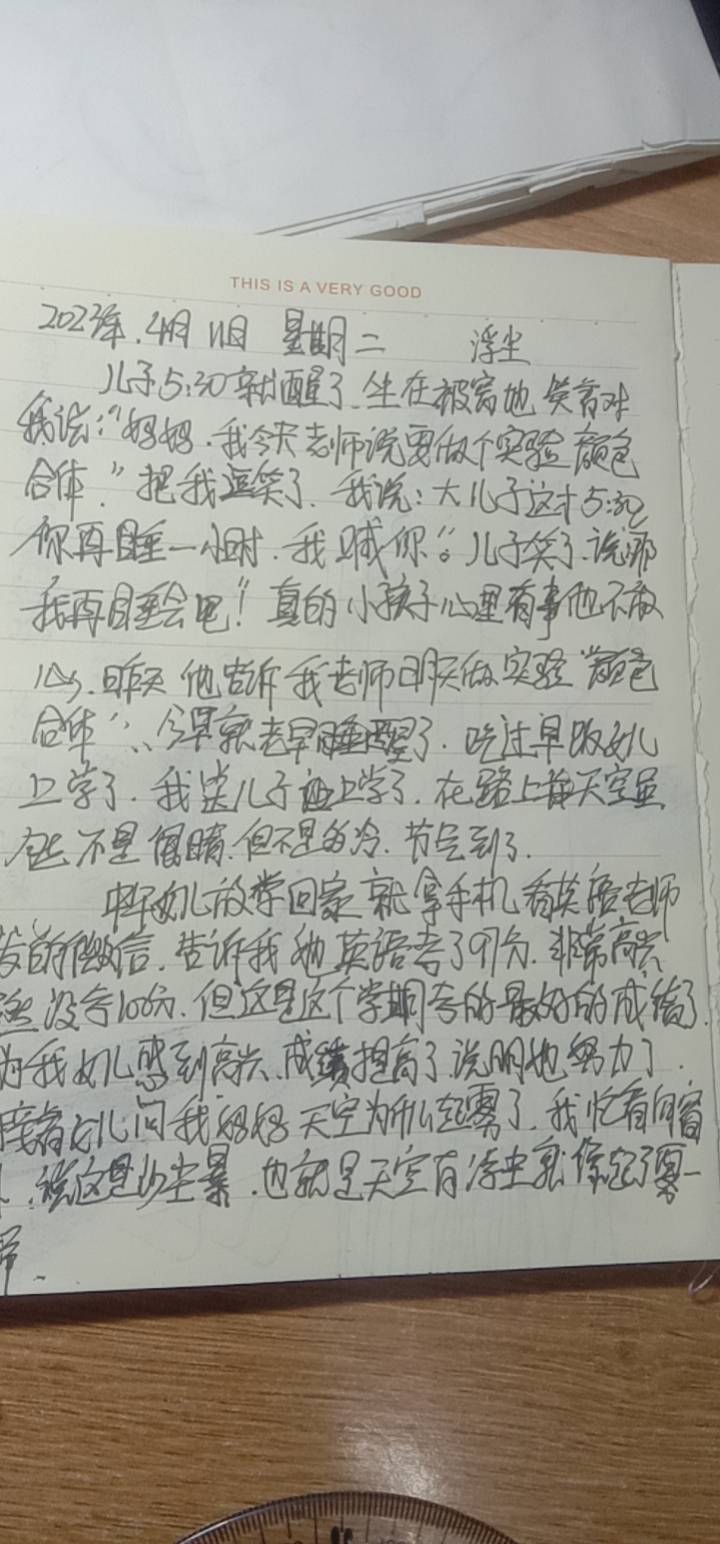 THIS IS A VERY GOOD
2023年.4月11日 星期二 浮尘
儿子5:30就醒了.坐在被窝地笑着对
我说:"妈妈.我今天老师说要做个实验颜色
合体."把我逗笑了.我说:大儿子这才5:30
你再睡一小时.我喊你"。儿子笑了.说那
我再睡会吧!"真的小孩子心里有事他不敢
心.昨天他告诉我老师明天做实验"颜色
合体"、今早就老早睡醒了.吃过早饭女儿
上学了.我送儿子上学了.在路上天空虽
不是很晴.但不是多冷.节气到了.
中午女儿放学回家就拿手机看英语老师
发的微信.告诉我她英语考了97分.非常高兴
没考100分.但这是这个学期考的最好的成绩了.
为我女儿感到高兴.成绩提高了.说明她努力了.
接着女儿问我妈妈天空为什么起雾了.我忙看向窗
.说这是沙尘暴.也就是天空有浮尘就像起了雾一